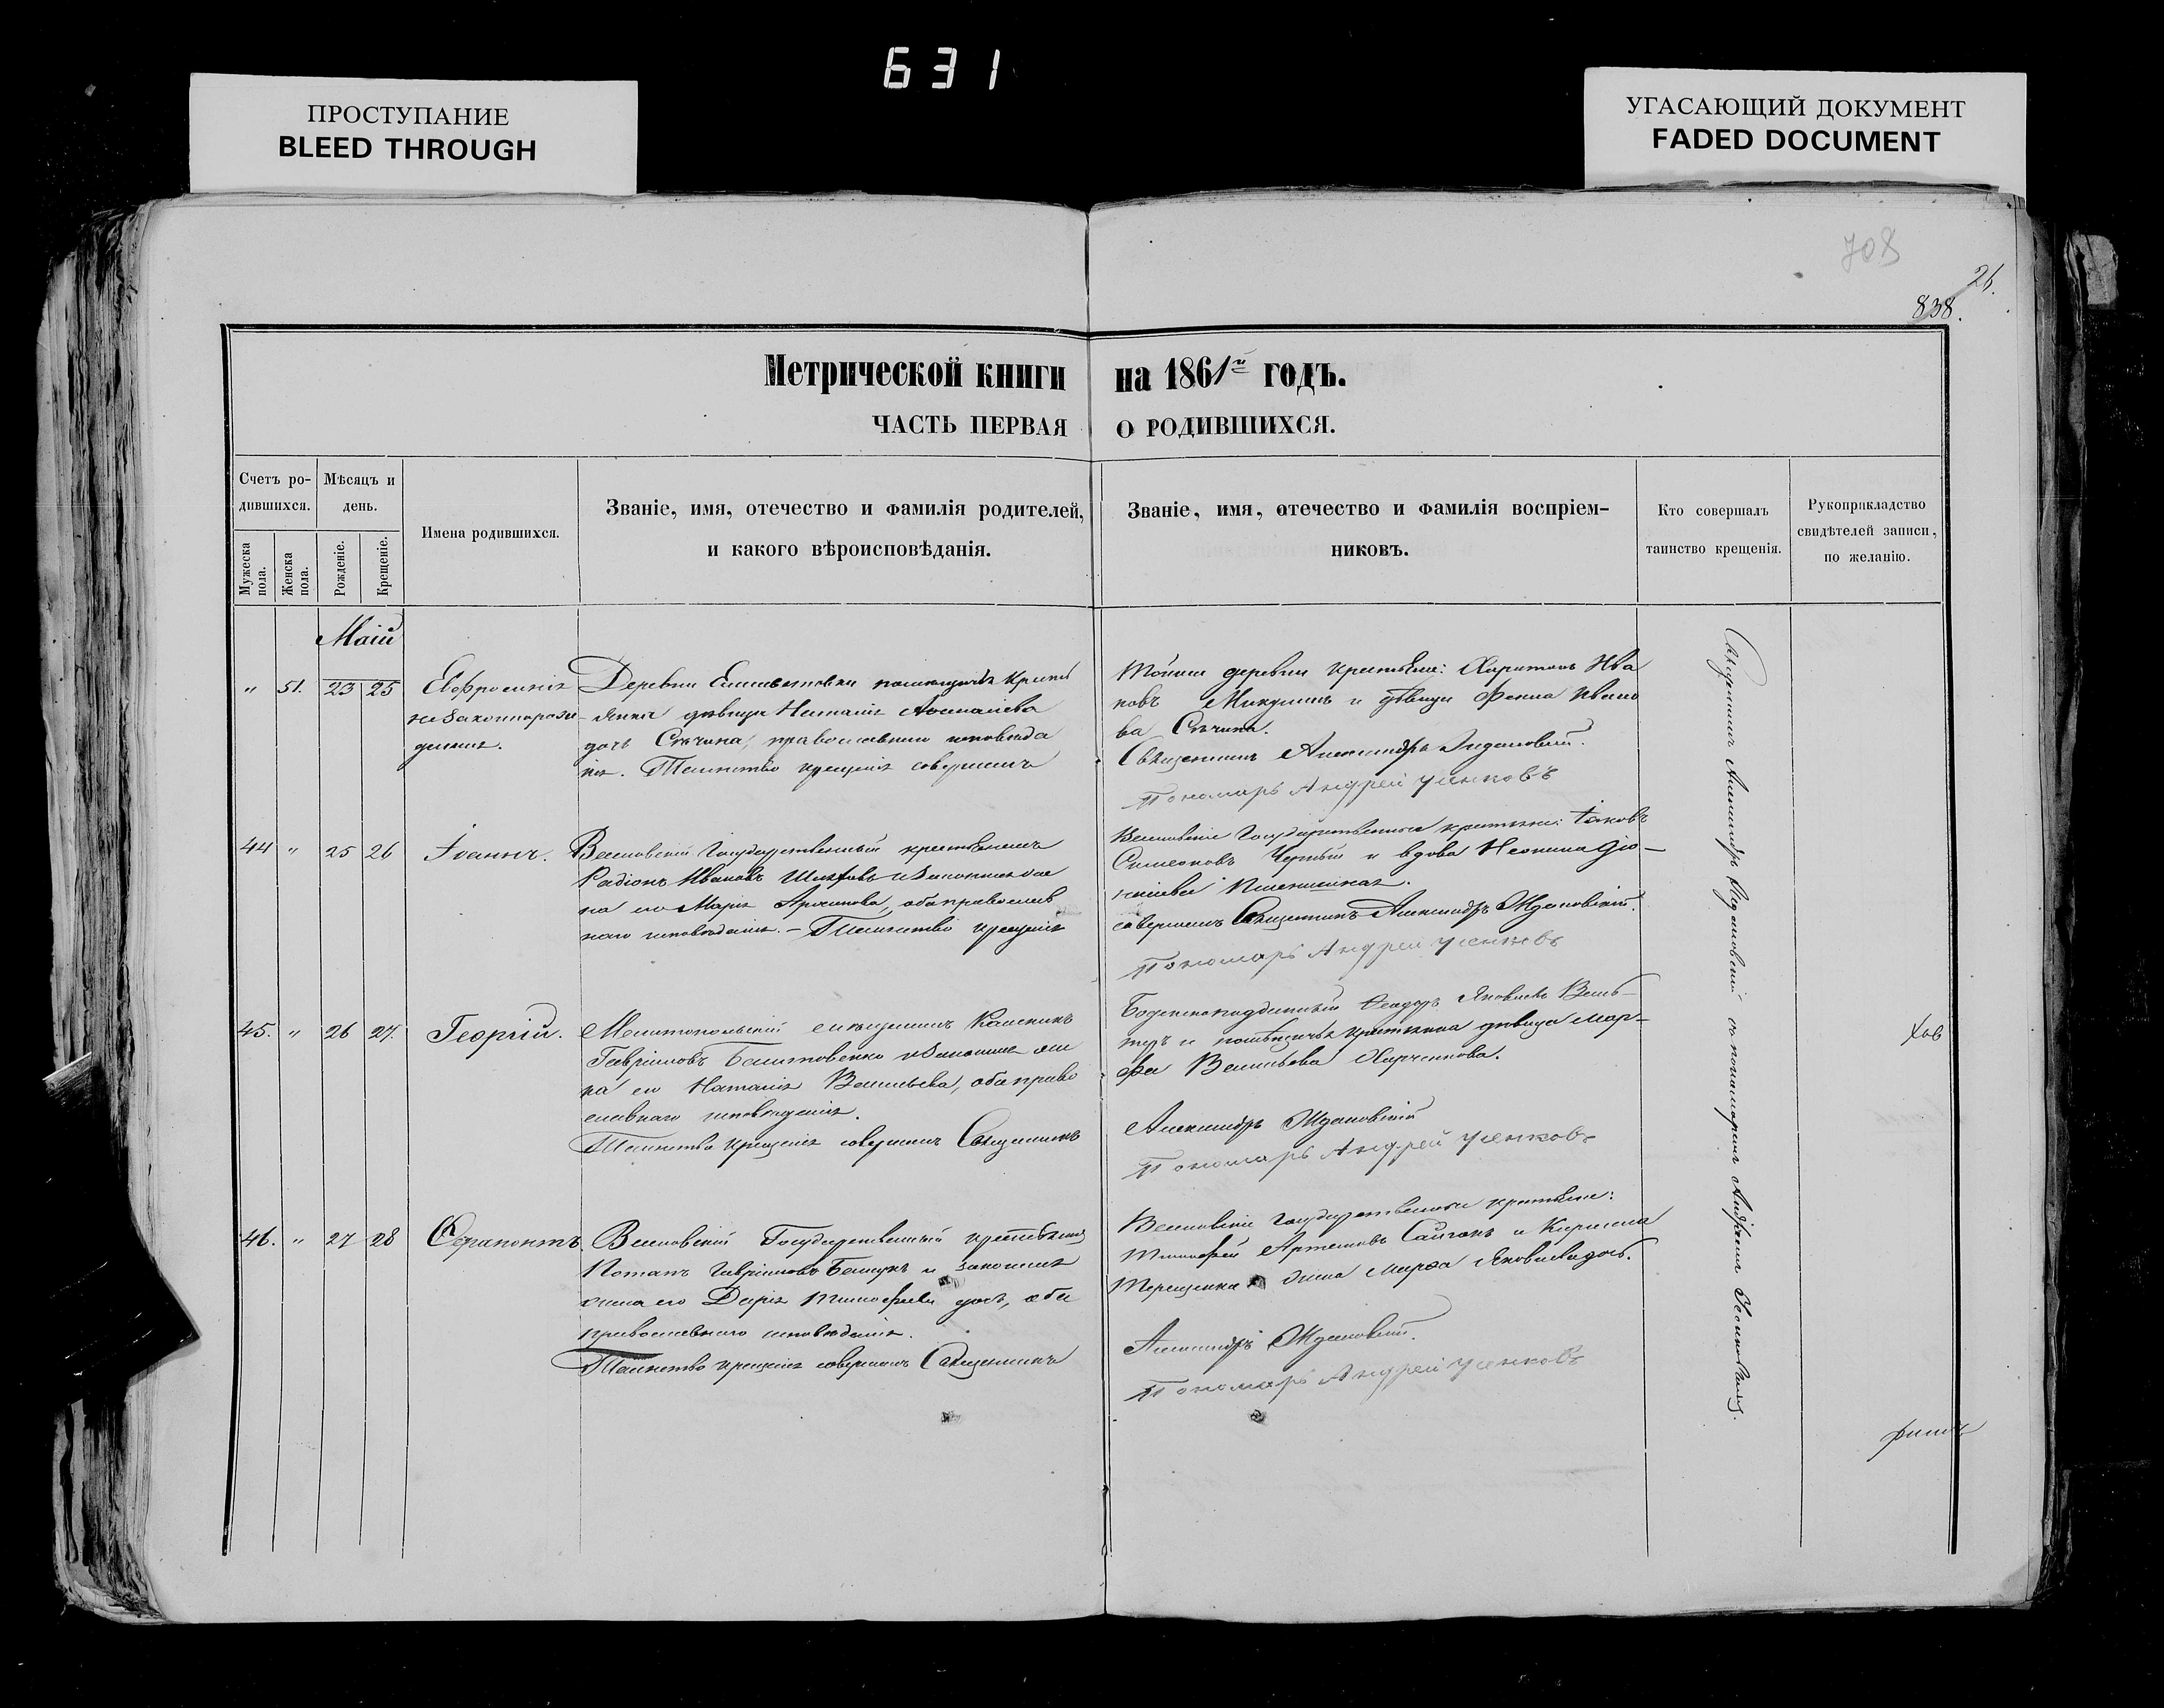 631
ПРОСТУПАНИЕ
BLEED THROUGH
УГАСАЮЩИЙ ДОКУМЕНТ
FADED DOCUMENT
708
26.
838.
Метрической книги на 1861й годъ.
ЧАСТЬ ПЕРВАЯ О РОДИВШИХСЯ.
Счетъ ро-
дившихся.
Мужеска пола.
Женска пола.
Мѣсяцъ и
день.
Рожденіе.
Крещеніе.
Имена родившихся.
Званіе, имя, отечество и фамилія родителей,
и какого вѣроисповѣданія.
Званіе, имя, отечество и фамилія воспріем-
никовъ.
Кто совершалъ
таинство крещенія.
Рукоприкладство
свидѣтелей записи,
по желанію.
Маій
" 51. 23 25 Евфросинія
незаконнорож-
денная.
Деревни Елисаветовки помѣщичья крест
янка дѣвица Наталія
дочь Сѣчина, православнаго исповѣда
нія. Таинство крещенія совершилъ
Тойже деревни крестьяне: Харитонъ Ива
новъ Микулинъ и дѣвица Фекла Ивано
ва Сѣчина.
Священникъ Александръ Ждановскій.
Пономарь Андрей Усенковъ
44 " 25 26 Іоаннъ.
Веселовскій Государственный крестьянинъ
Радіонъ Ивановъ и законная же
на его Марія, оба православ
наго исповѣданія. – Таинство крещенія
Веселовскіе Государственные крестьяне: Іаковъ
Симеоновъ Черный и вдова Неонила Діо-
нисіева Пшеничная.
совершилъ Священникъ Александръ Ждановскій.
Пономарь Андрей Усенковъ
45. " 26 27. Георгій.
Мелитопольскій мѣщанинъ
Гавріиловъ и законная же
на его Наталія Васильева, оба право
славнаго исповѣданія.
Таинство крещенія совершилъ Священникъ
Феодоръ Яковлевъ
и помѣщичья крестьянка дѣвица Мар-
фа Васильева Харченкова.
Александръ Ждановскій
Пономарь Андрей Усенковъ
46. " 27 28 Ферапонтъ.
Веселовскій Государственный крестьянинъ
Потапъ Гавріиловъ и законная
жена его Дарія Тимофеева дочь, оба
православнаго исповѣданія.
Таинство крещенія совершилъ Священникъ
Веселовскіе Государственные крестьяне:
Тимофей Артемовъ Сайганъ и Кирилла
Терещенка жена Марфа Яковлева дочь.
Александръ Ждановскій.
Пономарь Андрей Усенковъ
Священникъ Александръ Ждановскій съ пономаремъ Андреемъ Усенковымъ.